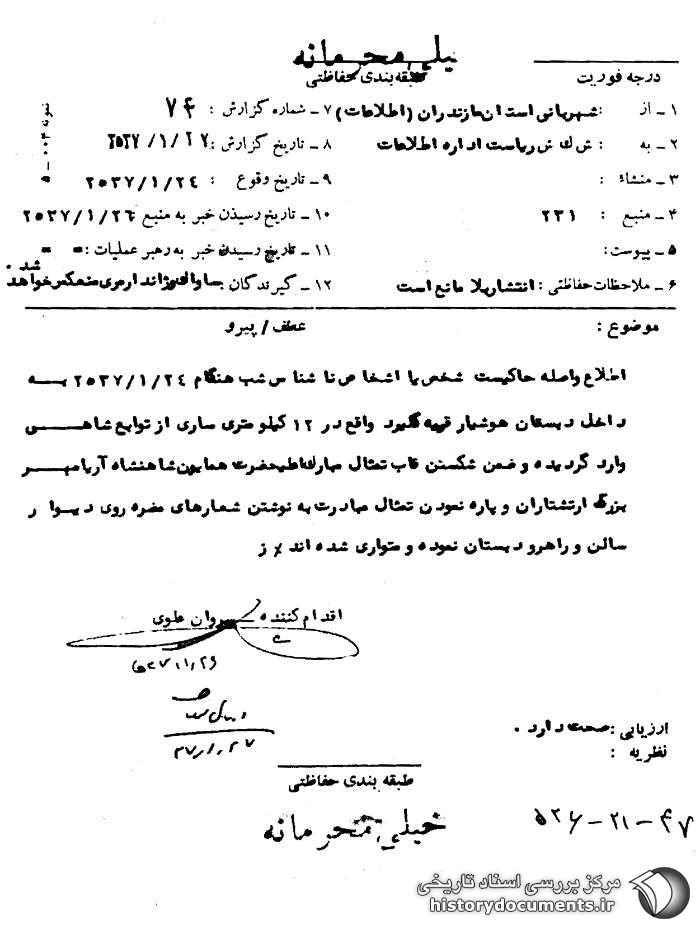 خیلی محرمانه
درجه فوریت
طبقه بندی حفاظتی
۱ ـ از : شهربانی استان مازندران (اطلاعات)
۷ ـ شماره گزارش : ۷۴
۲ ـ به : ش ک ش ریاست اداره اطلاعات
۸ ـ تاریخ گزارش : ۲۵۳۷/۱/۲۷
۳ ـ منشاء :
۹ ـ تاریخ وقوع : ۲۵۳۷/۱/۲۴
۴ ـ منبع : ۲۳۱
۱۰ ـ تاریخ رسیدن خبر به منبع ۲۵۳۷/۱/۲۶
۵ ـ پیوست:
۱۱ ـ تاریخ رسیدن خبر به رهبر عملیات : = =
۶ ـ ملاحظات حفاظتی : انتشار بلا مانع است
۱۲ ـ گیرندگان ساواک و ژاندارمری منعکس خواهد شد .
نمونه ۰۰۴ ـ ۵
موضوع :
عطف / پیرو
اطلاع واصله حاکیست شخص یا اشخاص ناشناس شب هنگام ۲۵۳۷/۱/۲۴ به
داخل دبستان هوشیار قریه واقع در ۱۲ کیلومتری ساری از توابع شاهی
وارد گردیده و ضمن شکستن قاب تمثال مبارک اعلیحضرت همایون شاهنشاه آریامهر
بزرگ ارتشتاران و پاره نمودن تمثال مبادرت به نوشتن شعارهای مضره روی دیوار
سالن و راهرو دبستان نموده و متواری شده اند ٪ ز
اقدام کننده سروان علوی
۳۷/۱/۲۶
۳۷/۱/۲۷
ارزیابی : صحت دارد .
نظریه :
طبقه بندی حفاظتی
خیلی محرمانه
۵۲۶-۲۱-۴۷
مرکز بررسی اسناد تاریخی
historydocuments.ir